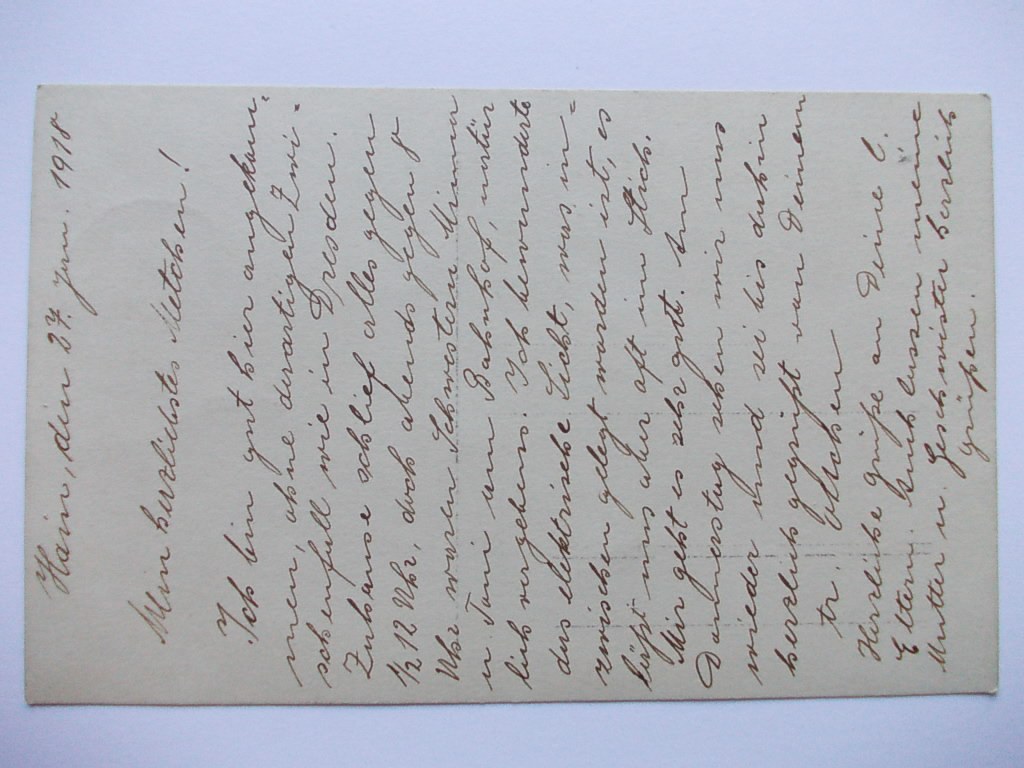 Hain, den 27. Jan. 1918
Mein herzlichstes Metchen!
Ich bin gut hier angekom-
men, ohne derartigen Zwi-
schenfall wie in Dresden.
Zuhause schlief alles gegen
1/2 12 Uhr, doch abends gegen 8
Uhr waren Schwestern Minna
u Toni am Bahnhof, natür
lich vergebens. Ich bewunderte
das elektrische Licht, was in-
zwischen gelegt worden ist, es
läßt uns aber oft im Stich.
Mir geht es sehr gut. Am
Donnerstag sehen wir uns
wieder und sei bis dahin
herzlich gegrüßt von Deinem
tr.
Herzliche Grüße an Deine l.
Eltern. Auch lassen meine
Mutter u. Geschwister herzlich
grüßen.